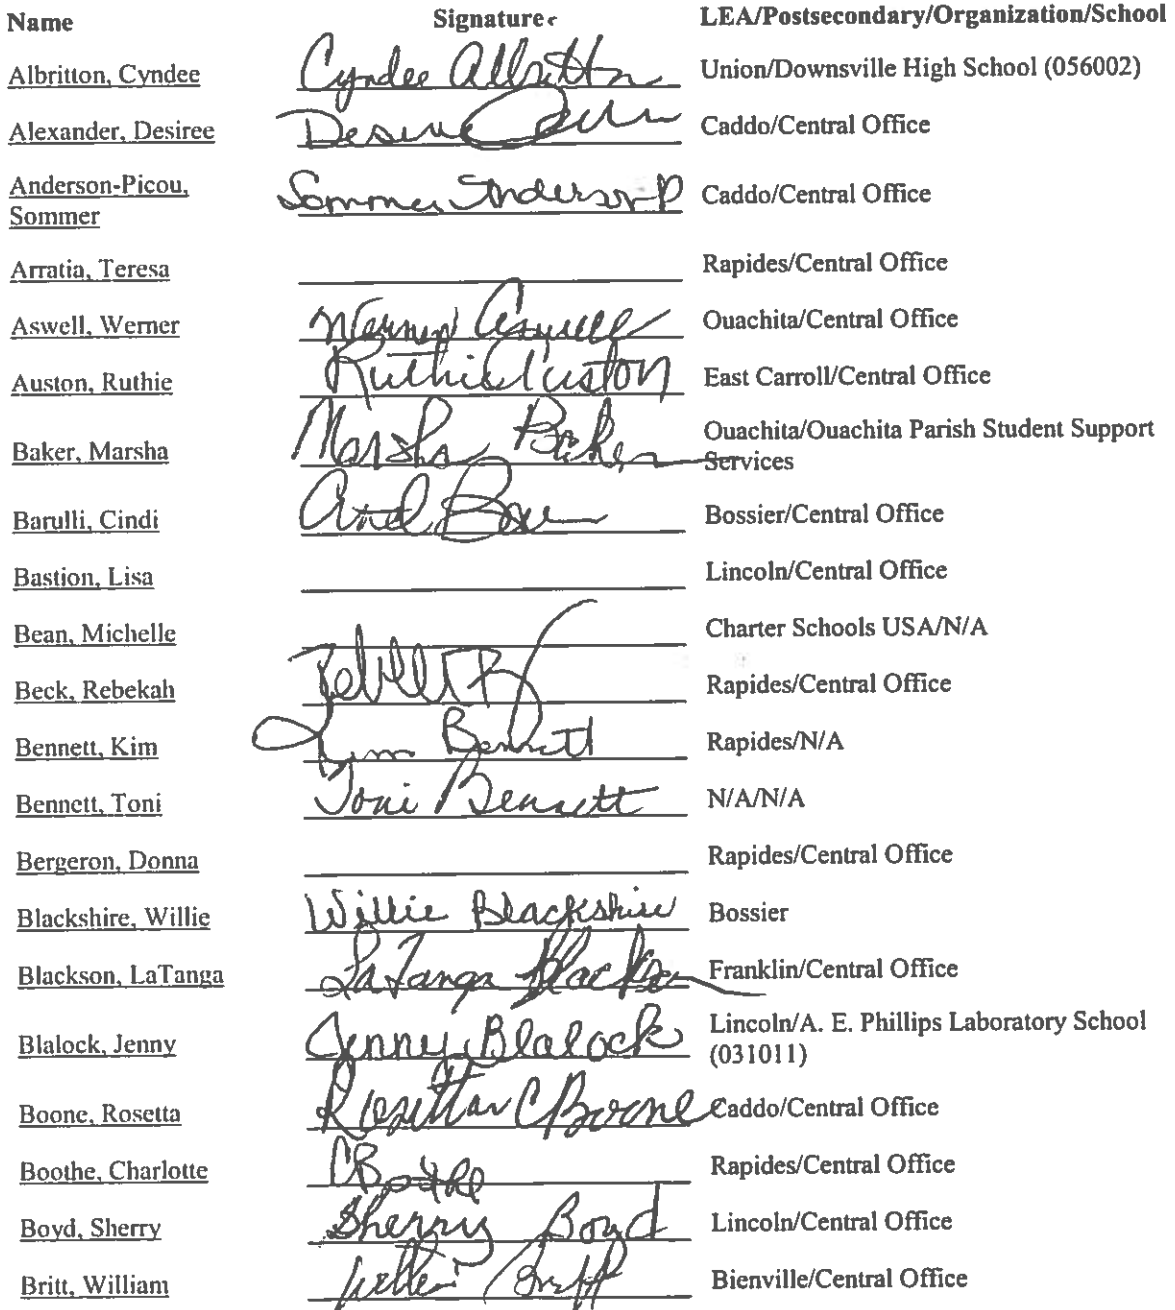 Name Signature LEA/Postsecondary/Organization/School
Albritton, Cyndee Cyndee Albritton Union/Downsville High School (056002)
Alexander, Desiree Desiree Caddo/Central Office
Anderson-Picou, Sommer Anderson-P Caddo/Central Office
Sommer
Arratia, Teresa Rapides/Central Office
Aswell, Werner Werner Aswell Ouachita/Central Office
Auston, Ruthie Ruthie Auston East Carroll/Central Office
Baker, Marsha Marsha Baker Ouachita/Ouachita Parish Student Support
Services
Barulli, Cindi Bossier/Central Office
Bastion, Lisa Lincoln/Central Office
Bean, Michelle Charter Schools USA/N/A
Beck, Rebekah Rapides/Central Office
Bennett, Kim Kim Bennett Rapides/N/A
Bennett, Toni Toni Bennett N/A/N/A
Bergeron, Donna Rapides/Central Office
Blackshire, Willie Willie Blackshire Bossier
Blackson, LaTanga LaTanga Blackson Franklin/Central Office
Blalock, Jenny Jenny Blalock Lincoln/A. E. Phillips Laboratory School
(031011)
Boone, Rosetta Rosetta C Boone Caddo/Central Office
Boothe, Charlotte CBoothe Rapides/Central Office
Boyd, Sherry Sherry Boyd Lincoln/Central Office
Britt, William Bienville/Central Office